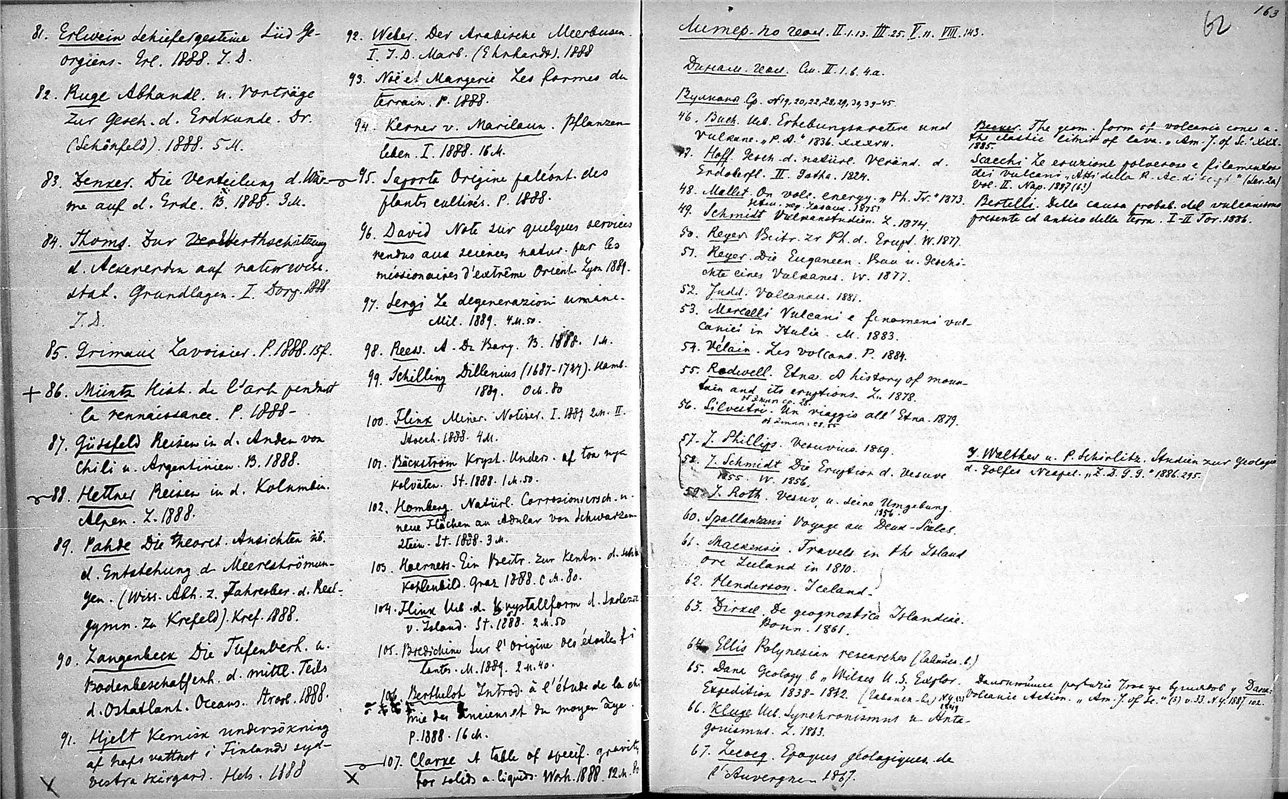 81. Erlwein Schiefergesteine Süd Ge-
orgiens. Erl. 1888. I.D.
82. Ruge Abhandl. u. Vorträge
zur Gesch. d. Erdkunde. Dr.
(Schönfeld). 1888. 5 M.
83. Zenker. Die Verteilung d. Wär-
ma auf d. Erde. B. 1888. 3 M.
84. Thoms. Zur Wertschätzung
d. Ackererden auf naturwiss.
stat. Grundlagen. I. Dorp. 1888
I.D.
85. Grimaux Lavoisier. P. 1888. 15 f.
+ 86. Müntz Hist. de l'art pendant
la rennaissance. P. 1888-
87. Güssfeld Reisen in d. Anden von
Chili u. Argentinien. B. 1888.
88. Hettner Reisen in d. Kolumbin.
Alpen. L. 1888.
89. Pahde Die theoret. Ansichten üb.
d. Entstehung d. Meerströmun-
gen. (Wiss. Abh. z. Jahresber. d. Real-
gymn. zu Krefeld). Kref. 1888.
90. Langenbeck Die Tiefenverh. u.
Bodenbeschaffenh. d. mittl. Teils
d. Ostatlant. Oceans. 1888.
91. Hjelt Kemisk undersökning
af hafsvattnet i Finlands syd-
vestra skärgård. Hels. 1888
92. Weber. Der Arabische Meerbusen.
I. I.D. Marb. (Ehrhardt). 1888
93. Noë et Margerie Les formes du
terrain. P. 1888.
94. Kerner v. Marilaun. Pflanzen
leben. I. 1888. 16 M.
95. Saporta Origine paléont. des
plantes cultivés. P. 1888.
96. David Note sur quelques services
rendus aux sciences natur. par les
missionaires d'extrême Orient. Lyon 1889.
97. Sergi Le degenerazioni umane.
Mil. 1889. 4 M. 50.
98. Reess. A. De Bary. B. 1888. 1 M.
99. Schilling Dillenius (1687-1747). Hamb.
1889. 0 M. 80
100. Flink Miner. Notizer. I. 1889 2 M. II.
Stoch. 1888. 4 M.
101. Bäckström Kryst. Unders. af tva nya
kolväten. St. 1888. 1 M. 50.
102. Homberg. Natürl. Corrosionsersch. u.
neue Flächen an Adular von Schwarzen
stein. St. 1888. 3 M.
103. Hoerness. Ein Beitr. zur Kentn. d.
Graz 1888. 0 M. 80.
104. Flink Ueb. d. Krystallform d.
v. Island. St. 1888. 2 M. 50
105. Bredichin Sur l'origine des étoiles fi
lantes. M. 1889. 2 M. 40.
106. Berthelot Introd. à l'étude de la chi
mie des anciens et du moyen âge.
P. 1888. 16 M.
107. Clarke A table of specif. gravity
for solids a. liquids. Wash. 1888.
62
163
Литер. по геол. II. 1. 13. III. 25. V. 11. VIII. 143.
Динам. геол. См. II. 1. 6. 4a.
Вулканы Ср. №19, 20, 22, 28, 29, 34, 39-45.
46. Buch. Ueb. Erhebungskratere und
Vulkane. „P. A." 1836. XXXVII.
47. Hoff. Gesch. d. natürl. Veränd. d.
Erdoberfl. II. Gotha. 1824.
48. Mallet. On volc. energy. „Ph. Tr." 1873.
49. Schmidt Vulkanstudien. L. 1874.
50. Reyer. Beitr. zr Ph. d. Erupt. W. 1877.
51. Reyer. Die Euganeen. Bau u. Geschi-
chte eines Vulkanes. W. 1877.
52. Judd. Volcanoes. 1881.
53. Mercalli Vulcani e fenomeni vul-
canici in Italia. M. 1883.
54. Vélain. Les volcans. P. 1884.
55. Rodwell. Etna. A history of moun-
tain and its eruptions. L. 1878.
56. Silvestri. Un viaggio all' Etna. 1879.
57. J. Phillips. Vesuvius. 1869.
58. J. Schmidt Die Eruption d. Vesuv
1855. W. 1856.
59. J. Roth. Vesuv. u. seine Umgebung
60. Spallanzani Voyage au Deux-Siciles.
61. Mackensie. Travels in the Island
ore Iceland in 1810.
62. Henderson. Iceland.
63. De geognostica Islandiae.
Bonn. 1861.
64. Ellis Polynesian researches
65. Dana Geology b „Wilkes U.S. Explor.
Expedition 1838-1842.
66. Kluge Ueb. Synchronismus u. Anta-
gonismus. L. 1863.
67. Lecoq. Epoques géologiques de
l'Auvergne. 1867.
Becker. The geom. form of volcanic cones a.
the elastic limit of lava. „Am. J. of Sc." XXX.
1885.
Scacchi. Le eruzione polverose e filamentose
dei vulcani „Atti della R. Ac. di Sc. (ser. 2a)
Vol. II. Nap. 1887 (6?)
Bertelli. Delle causa probab. del vulcanismo
presente ed antico della terra. I-II Tor. 1886.
J. Walther u. P. Schirlitz. Studien zur Geologie
d. Golfes Neapel. „Z. D. G. G." 1886. 295.
Volcanic Action. „Am. J. of Sc." (3) v. 33. 1887